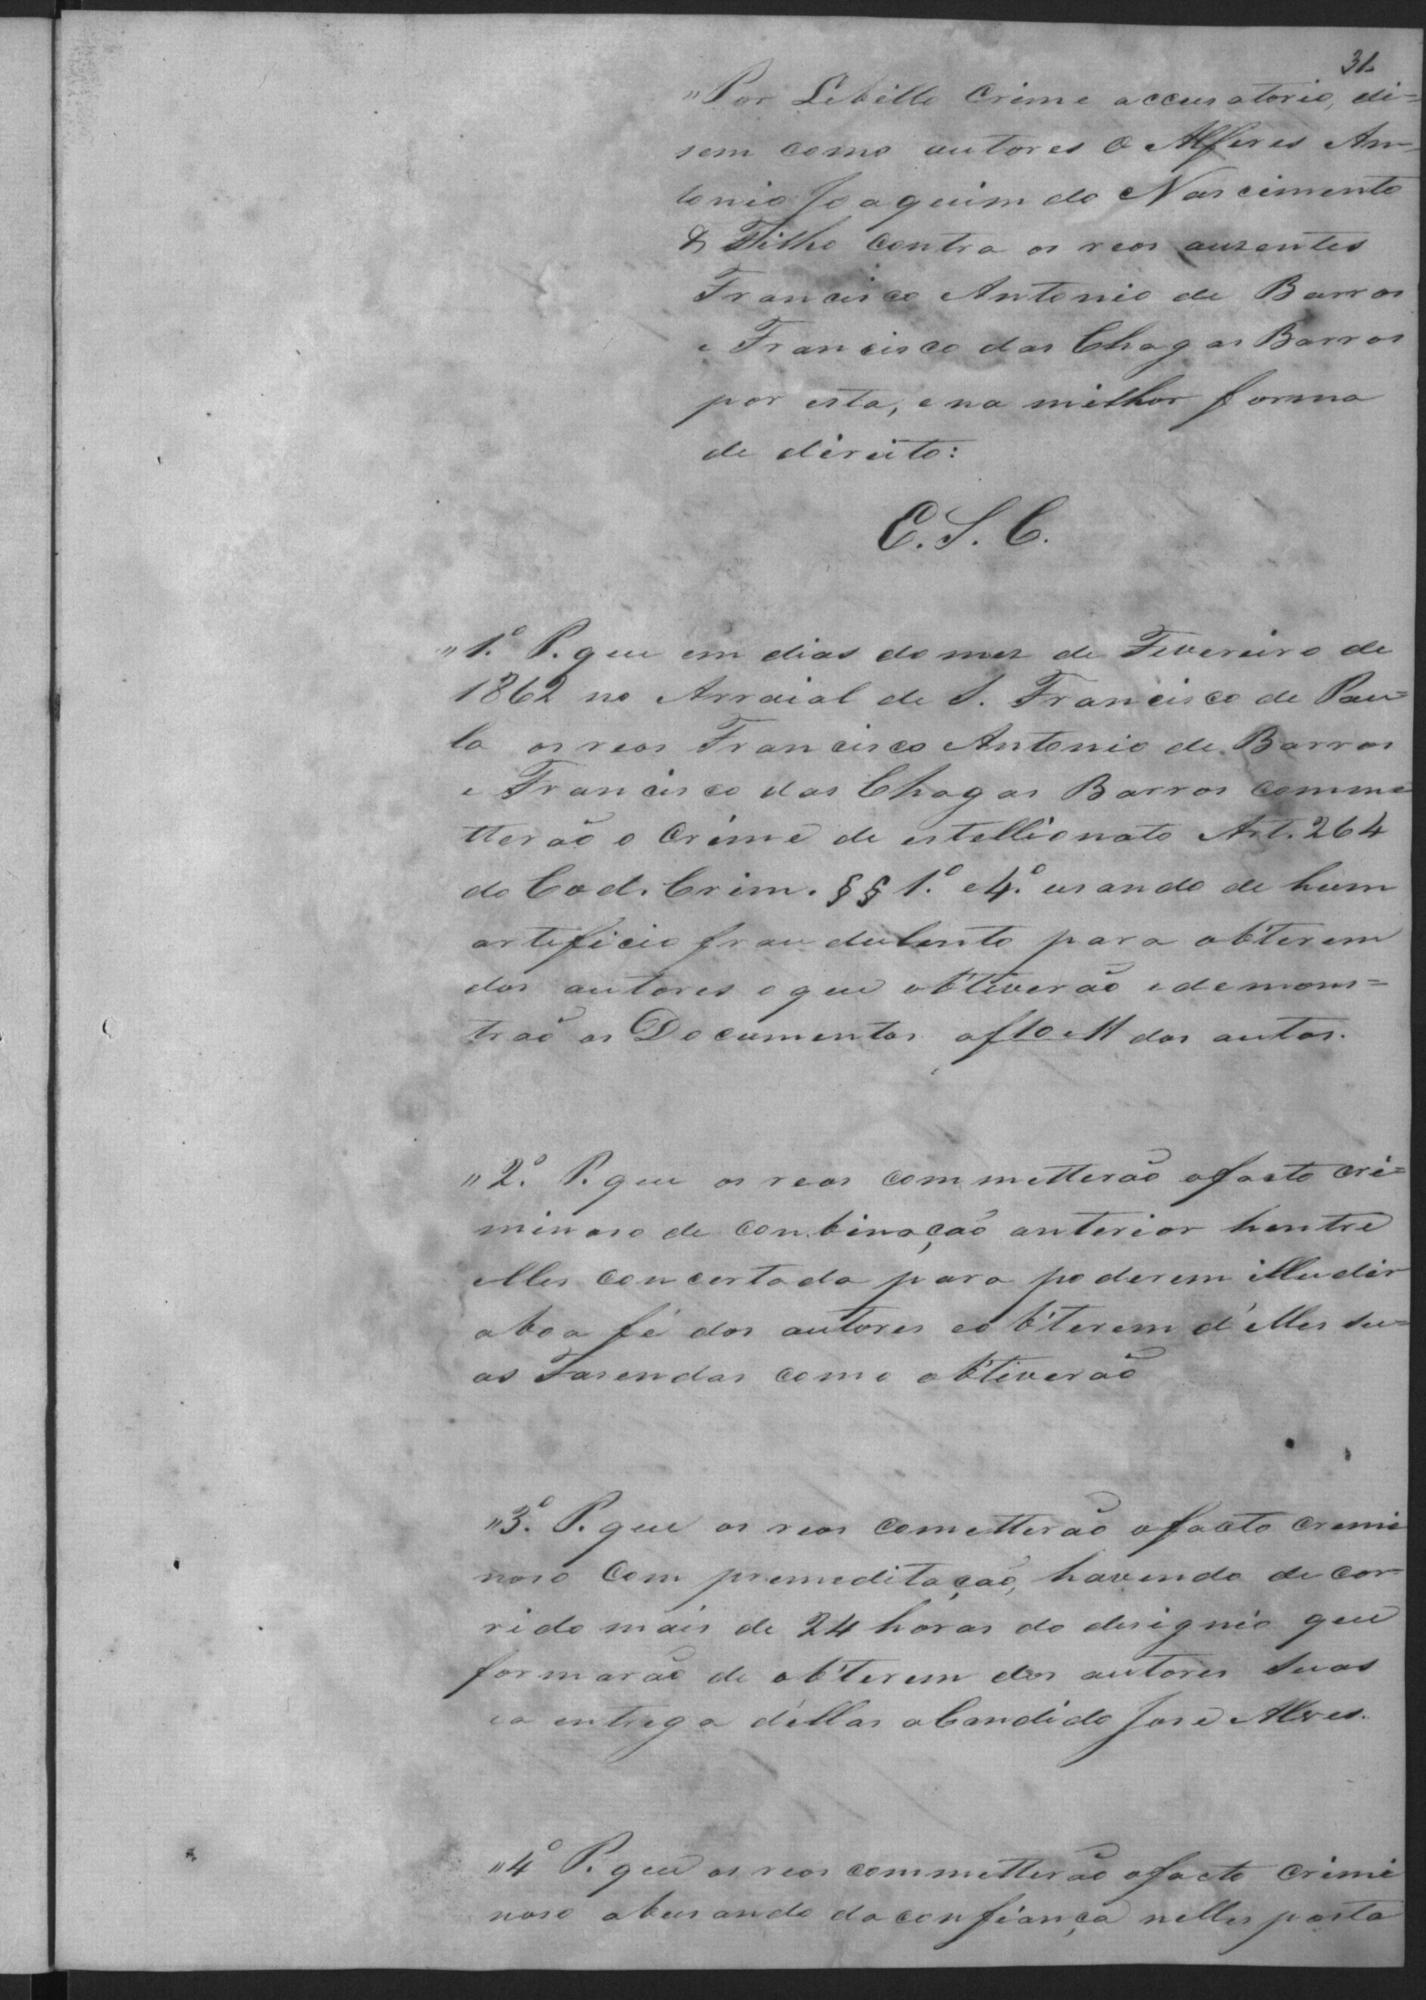 31.
"Por Libello Crime accusatorio, di=
sem como autores o Alferes An-
tonio Joaquim do Nascimento
& Filho contra os reos auzentes
Francisco Antonio de Barros
e Francisco das Chagas Barros
por esta, e na milhor forma
de direito:
E. S. C.
"1.º P. que em dias do mez de Fevereiro de
1862 no Arraial de S. Francisco de Pau=
la os reos Francisco Antonio de Barros
e Francisco das Chagas Barros comme
tterão o Crime de estellionato Art. 264
do Cod. Crim. §§ 1.º e 4.º usando de hum
artificio fraudulento para obterem
dos autores o que obtiverão e demons=
trão os Documentos a f 10 e 11 dos autos.
"2.º P. que os reos commetterão o facto cri=
minoso de conbinação anterior hentre
elles concertada para poderem illudir
a boa fé dos autores e obterem d'elles su=
as Fasendas como obtiverão
"3.º P. que os reos cometterão o facto crimi
noso com premeditação, havendo decor-
rido mais de 24 horas do designio que
formarão de obterem dos autores suas
e a entrega d'ellas a Candido José Alves.
"4º P. que os reos commetterão o facto crimi
noso abusando da confiança nelles posta